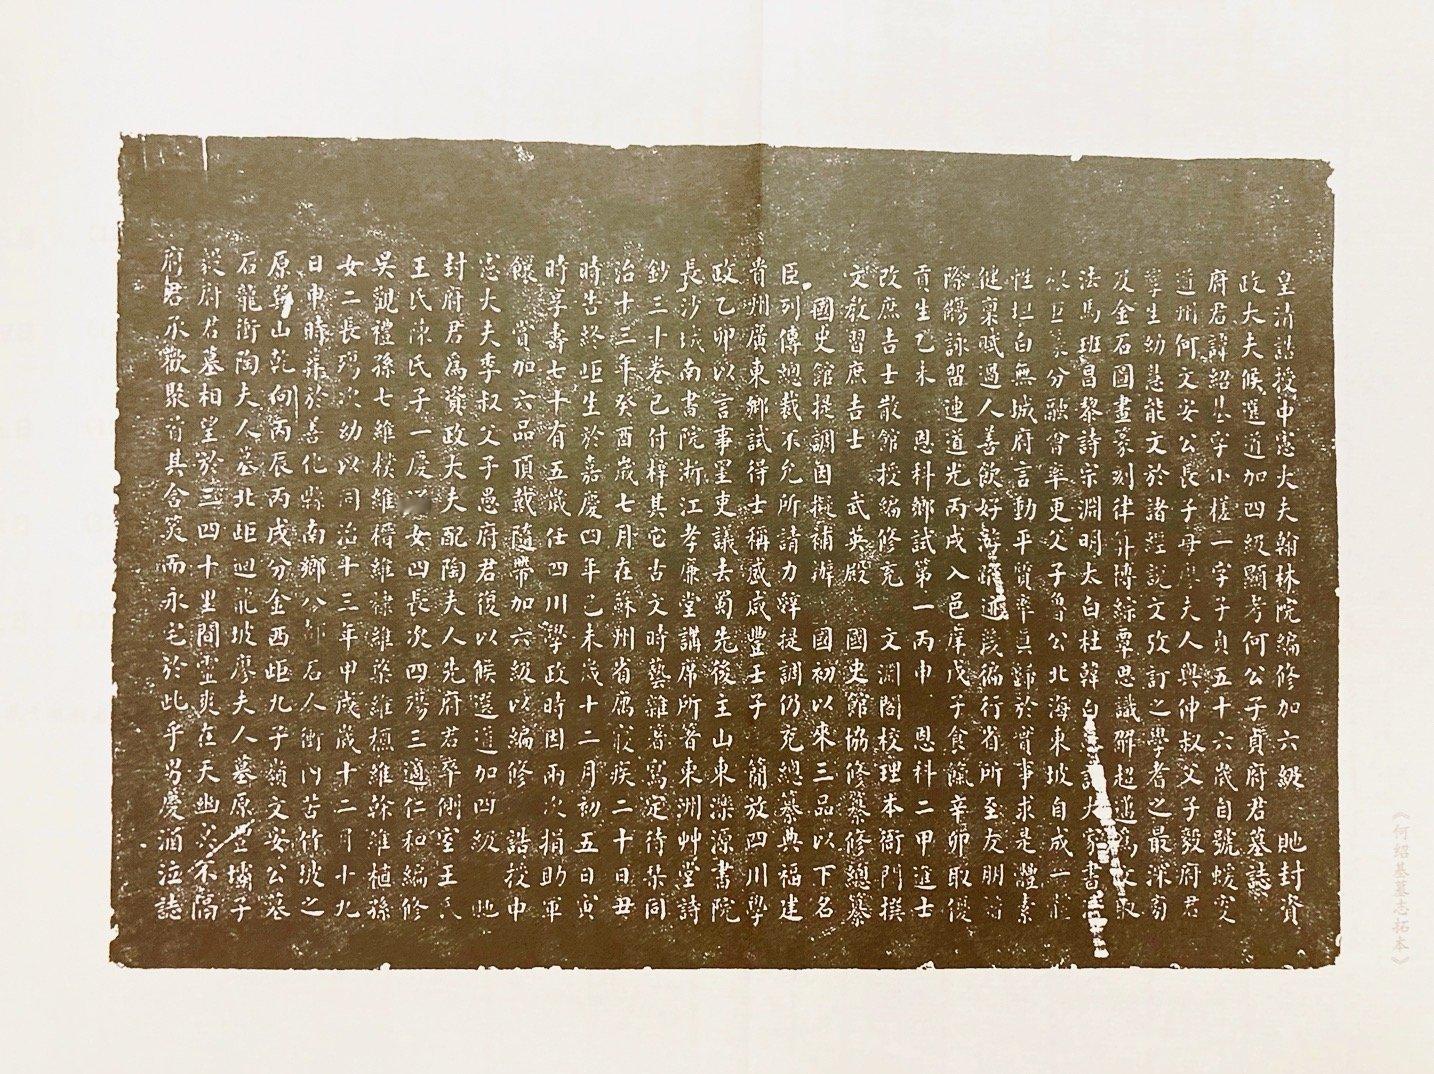 皇清誥授中憲大夫翰林院編修加六級 貤封資
政大夫候選道加四級顯考何公子貞府君墓誌
府君諱紹基字小槎一字子貞五十六歲自號蝯叟
道州何文安公長子母廖夫人與仲叔父子毅府君
孿生幼慧能文於諸經說文攷訂之學耆之最深旁
及金石圖畫篆刻律算博綜覃思識解超邁為文取
法馬班昌黎詩宗淵明太白杜韓白 諸大家書
分融會率更父子魯公北海東坡自成一
性坦白無城府言動平質率真歸於實事求是體素
健稟賦過人善飲好 談諧遊 徧行省所至友朋
除觴詠留連道光丙戌入邑庠戊子食餼辛卯取優
貢生乙未 恩科鄉試第一丙申 恩科二甲進士
改庶吉士散館授編修充 文淵閣校理本衙門撰
文教習庶吉士 武英殿 國史館協修纂修總纂
國史館提調因擬補辦 國初以來三品以下名
臣列傳總裁不允所請力辭提調仍充總纂典福建
貴州廣東鄉試得士稱盛咸豐壬子 簡放四川學
政乙卯以言事罣吏議去蜀先後主山東濼源書院
長沙城南書院浙江孝廉堂講席所著東洲艸堂詩
鈔三十卷已付梓其它古文時藝雜著寫定待栞同
治十三年癸酉歲七月在蘇州省寓 疾二十日丑
時告終距生於嘉慶四年己未歲十二月初五日寅
時享壽七十有五歲任四川學政時因兩次捐助軍
餉 賞加六品頂戴隨帶加六級以編修 誥授中
憲大夫季叔父子愚府君復以候選道加四級 貤
封府君為資政大夫配陶夫人先府君卒側室王氏
王氏陳氏子一慶 女四長次四殤三適仁和編修
吳觀禮孫七維棪維樠維棣維 維 維榦維植孫
女二長殤次幼以同治十三年甲戌歲十二月十九
日申時葬於善化縣南鄉八都石人衝內苦竹坡之
原巽山乾向丙辰丙戌分金西距九子嶺文安公墓
石龍衝陶夫人墓北距迴龍坡廖夫人墓原 壩子
毅府君墓相望於三四十里間靈爽在天幽 不隔
府君承歡聚首其含笑而永宅於此乎男慶涵泣誌
《何绍基墓志拓本》